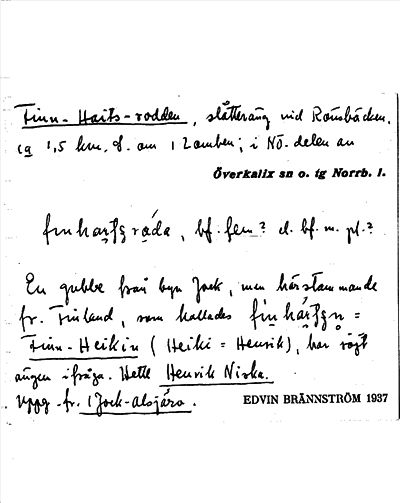 Finn-Haits-rodden, slåtteräng vid Rönsbäcken,
ca 1,5 km. O. om 1 Lomben; i NO. delen av
Överkalix sn o. tg Norrb. l.
, bf. fem? el. bf. m. pl.?
En gubbe från byn Jock, men härstammande
fr. Finland, som kallades =
Finn-Heikin (Heiki = Henrik), har röjt
ängen ifråga. Hette Henrik Niska.
Uppg. fr. 1 Jock-alsjärv.
EDVIN BRÄNNSTRÖM 1937